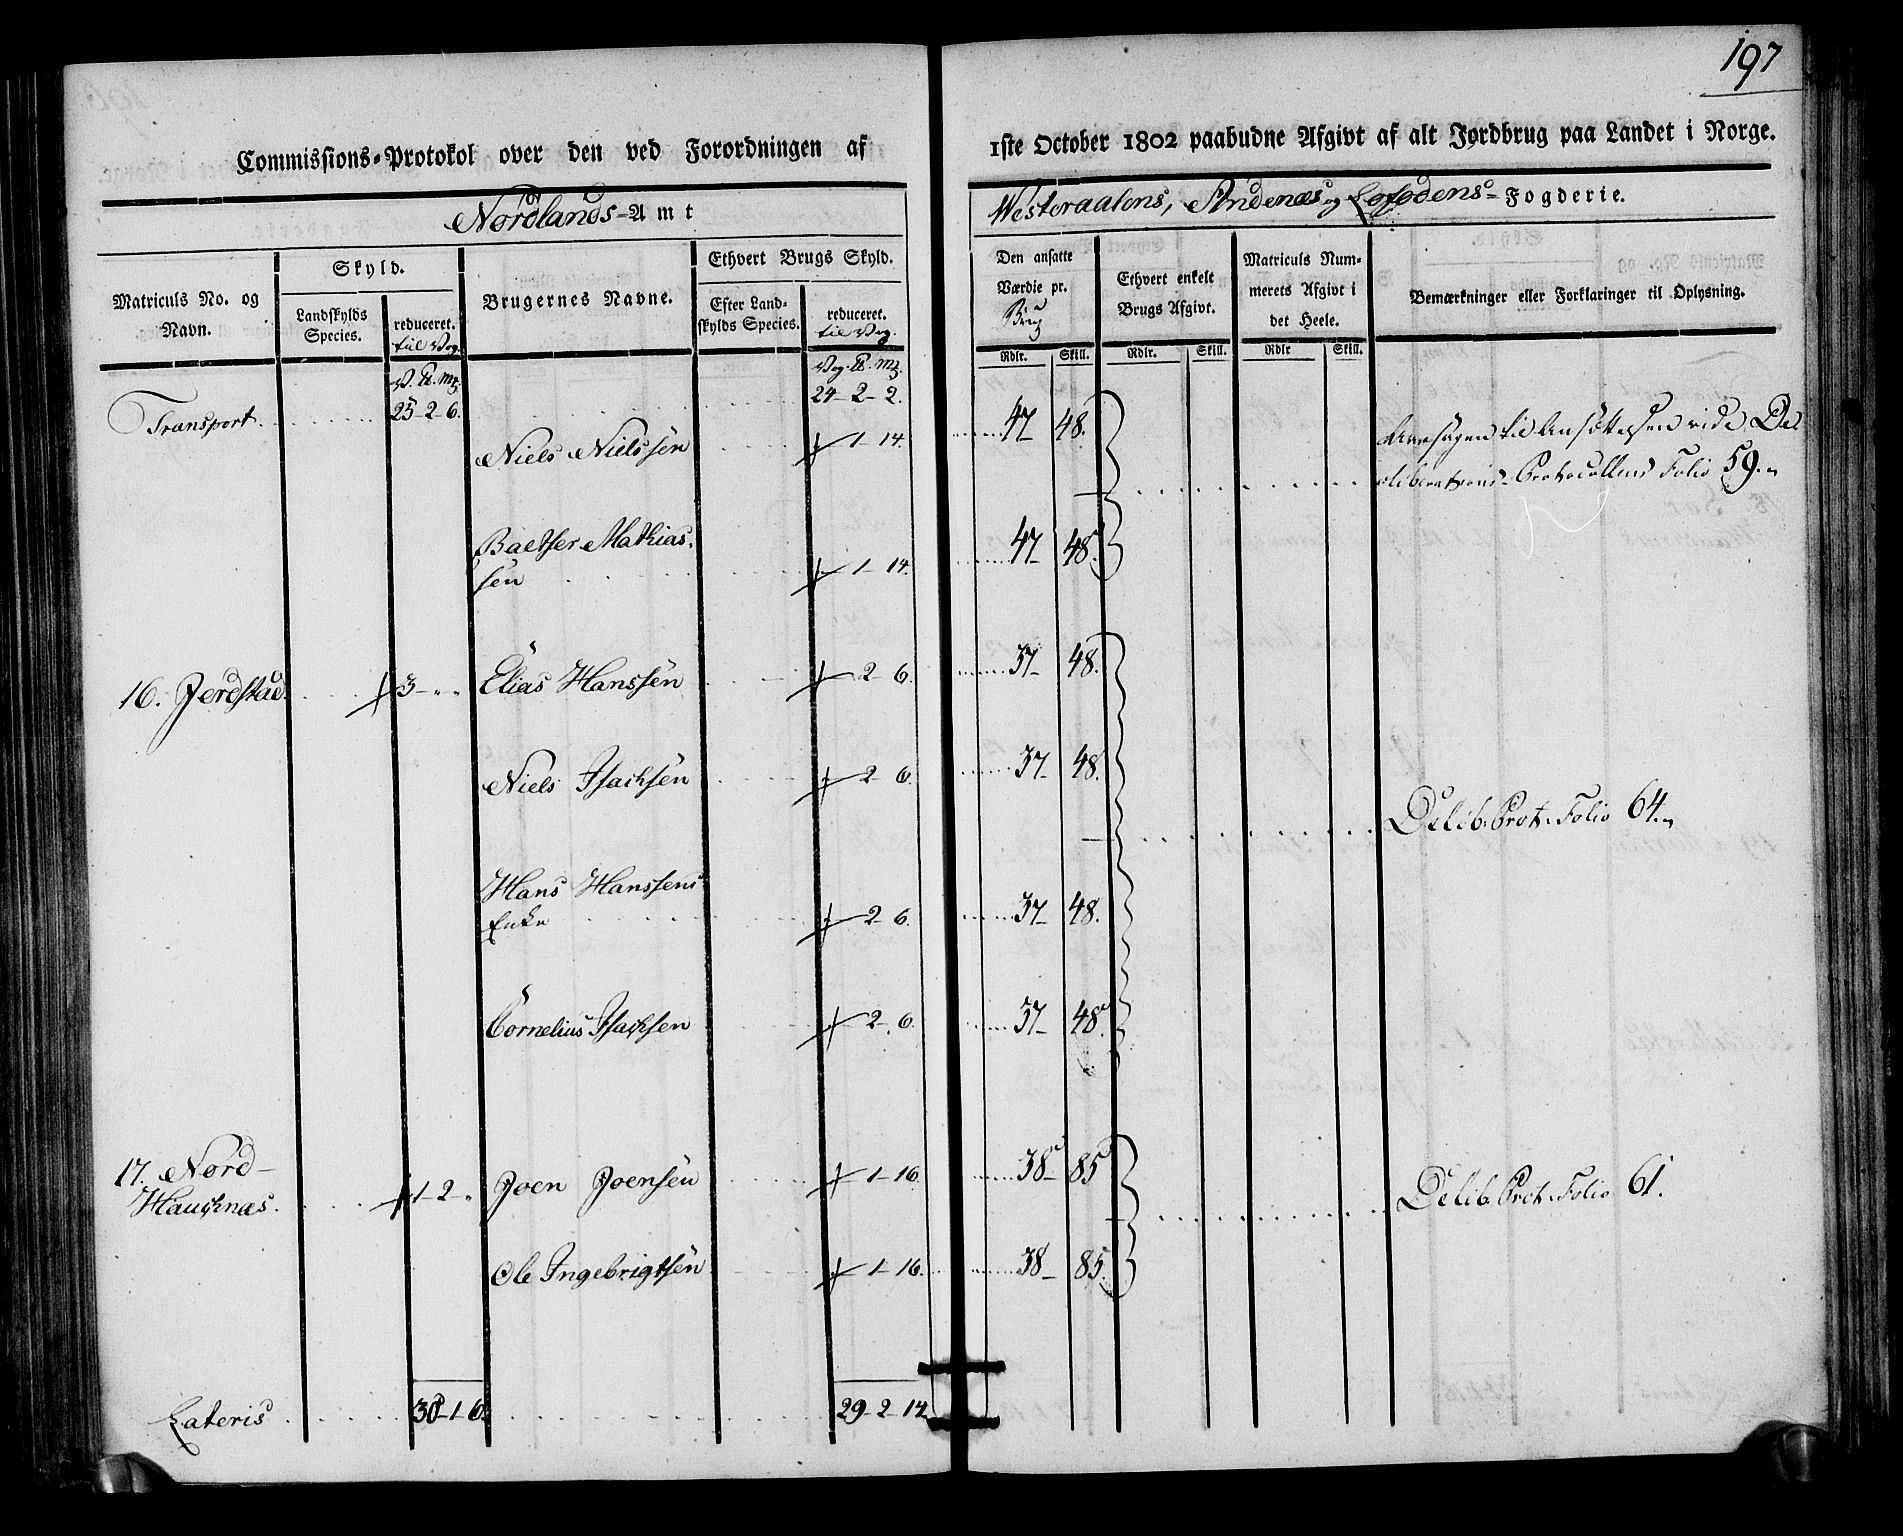 197
Commissions-Protokol over den ved Forordningen af 1ste October 1802 paabudne Afgivt af alt Jordbrug paa Landet i Norge.
Nordlands-Amt
Westeraalens, Andenæs og Lofodens-Fogderie.
Matriculs No. og Navn.
Skyld.
Landskylds Species.
reduceret. til Vog.
Brugernes Navne.
Ethvert Brugs Skyld.
Efter Landskylds Species.
reduceret. til Vog.
Den ansatte Værdie pr. Brug
Ethvert enkelt Brugs Afgivt.
Matriculs Nummerets Afgivt i det Heele.
Bemærkninger eller Forklaringer til Oplysning.
Rdlr. Skill. Rdlr. Skill. Rdlr Skill.
V. ℔. mk. Vog. ℔. mk.
Transport 25-2-6. 24-2-2.
Niels Nielssen 1-14. 47 48.
Aarsagen til Ansættelsen vide De-
liberations-Protocollens Folio 59.
Baltser Mathias-
sen 1-14. 47 48.
16. Jerdstad 3 - " " Elias Hanssen 2-6. 37 48.
Niels Isachsen 2-6. 37 48.
Delib. Prot. Folio 64.
Hans Hanssens
Enke 2-6. 37 48.
Cornelius Isachsen 2-6. 37 48.
17. Nord-
Hauknæs. 1-2-" Joen Joensen 1-16. 38 85
Delib. Prot. Folio 61.
Ole Ingebrigtsen 1-16. 38 85.
Lateris 30-1-6. 29-2-14.